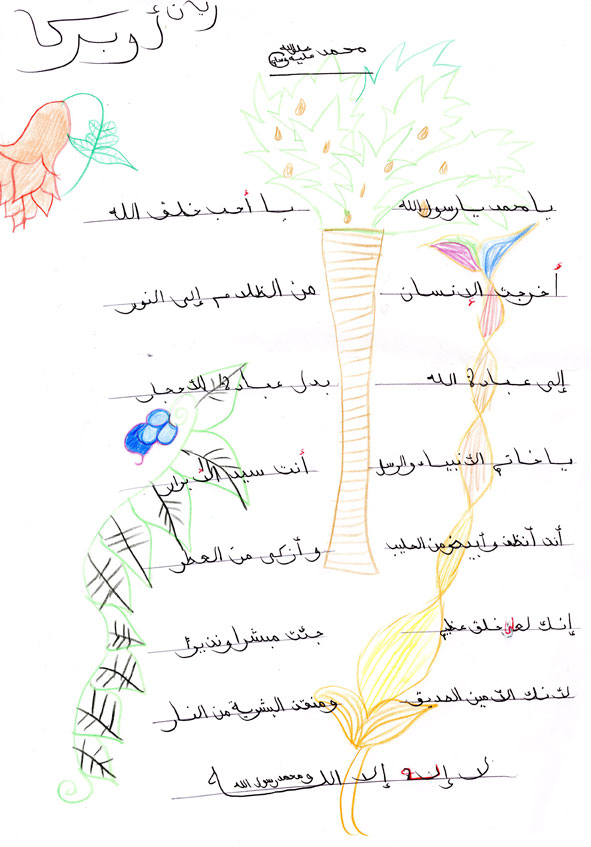 ريان أوبركا
محمد صلى الله عليه وسلم
يا محمد يا رسول الله يا أحب خلق الله
أخرجت الإنسان من الظلام إلى النور
إلى عبادة الله بدل عبادة الأحجار
يا خاتم الأنبياء والرسل أنت سيد الأبرار
أنت أنظف وأبيض من الحليب وأزكى من العطر
إنك لعلى خلق عظيم جئت مبشرا ونذيرا
لأنك الأمين الصديق ومنقذ البشرية من النار
لا إله إلا الله ومحمد رسول الله